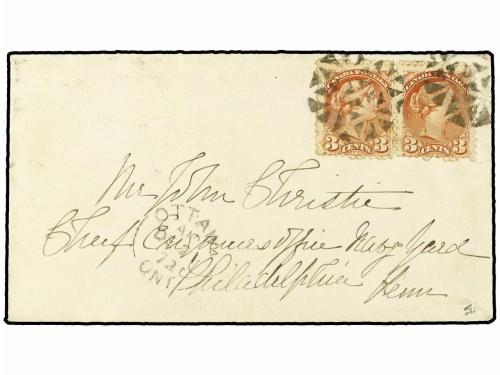 CANADA POSTAGE CANADA POSTAGE
3 CENTS 3 3 CENTS 3
Mr John Christie
OTTAWA
Chief Engineers Office Navy Yard
72
ONT
Philadelphia
Penn